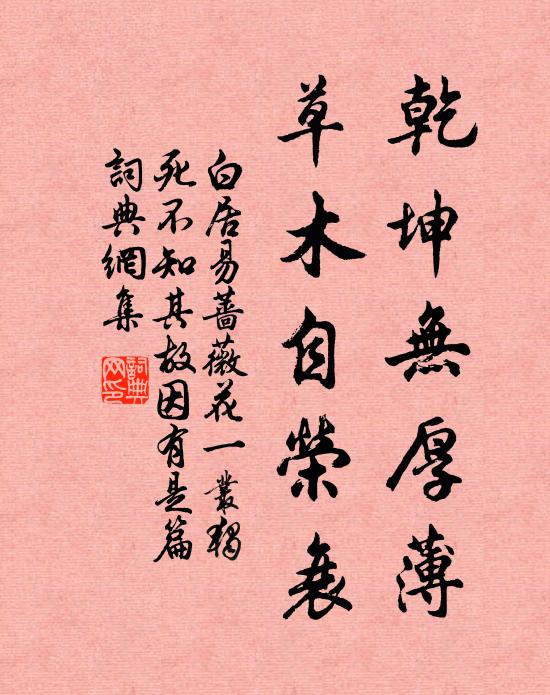 乾坤無厚薄
草木自榮衰
白居易薔薇花一叢獨
死不知其故因有是篇
詞典網集
詞典
网印